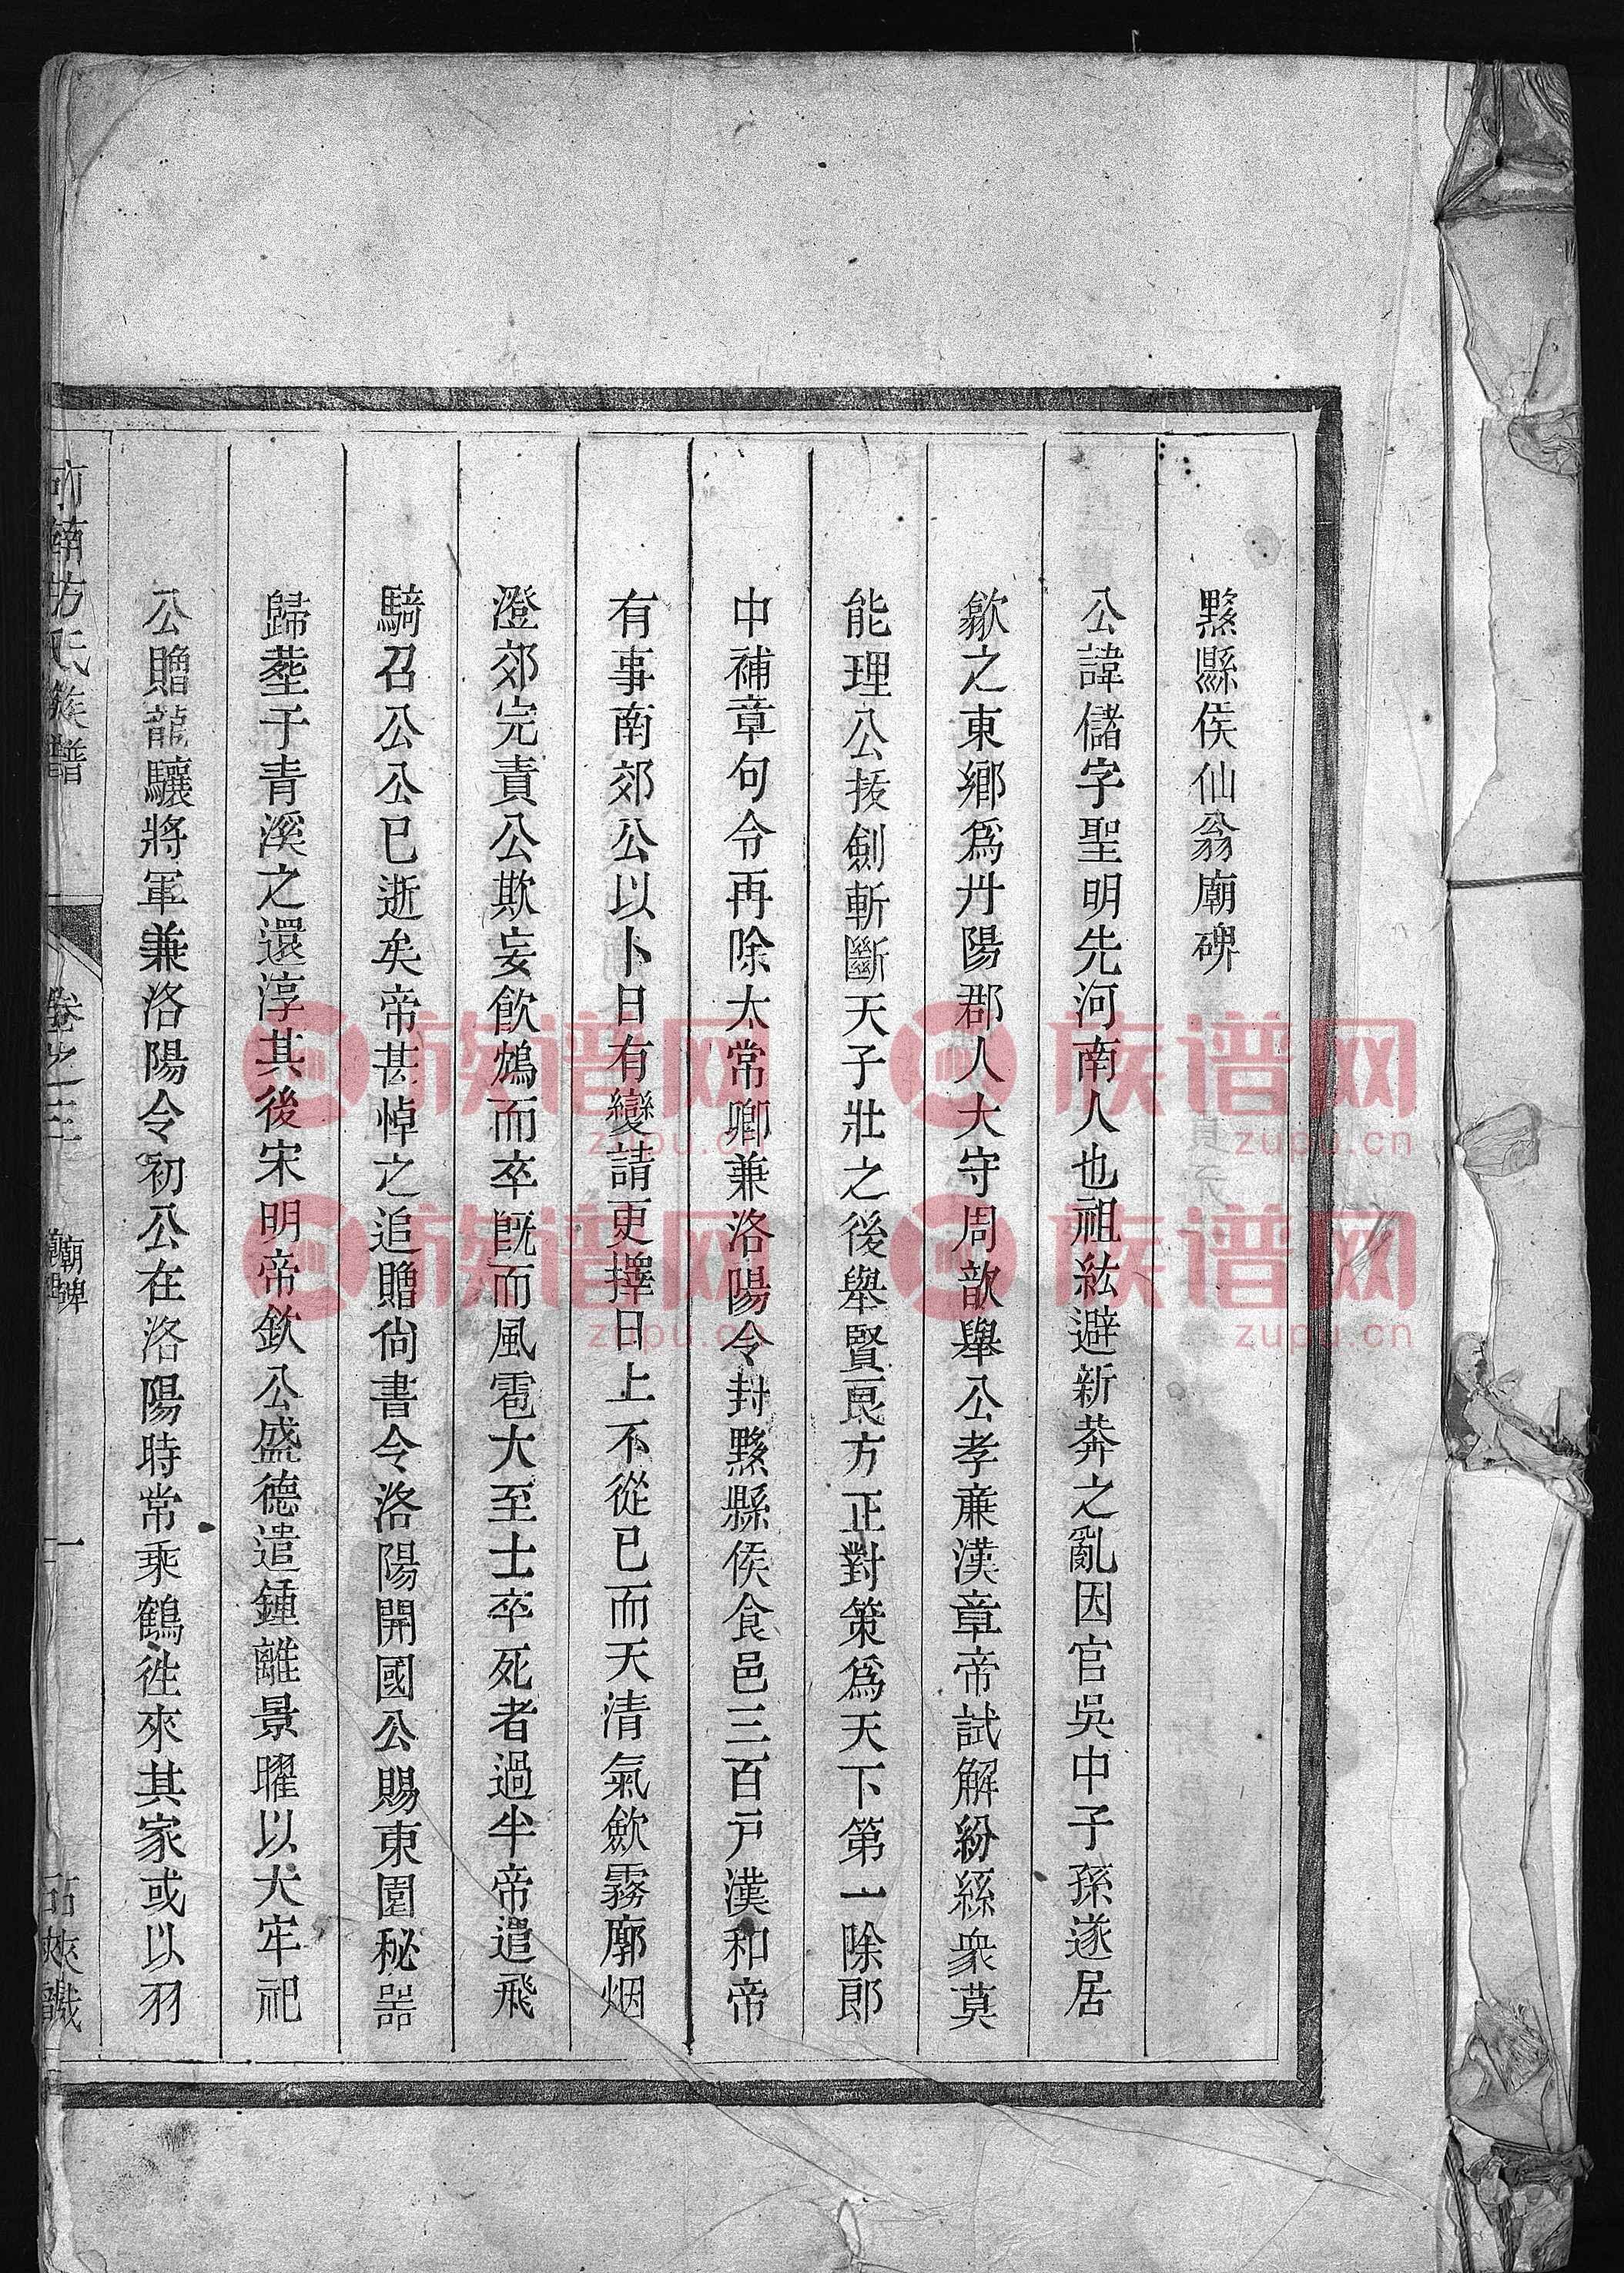 黟縣侯仙翁廟碑
公諱儲字聖明先河南人也祖紘避新莽之亂因官吳中子孫遂居
歙之東鄉爲丹陽郡人大守周歆舉公孝亷漢章帝試解紛絲衆莫
能理公拔劍斬斷天子壯之後舉賢良方正對策爲天下第一除郎
中補章句令再除太常卿兼洛陽令封黟縣侯食邑三百戸漢和帝
有事南郊公以卜日有變請更擇日上不從已而天清氣歛霧廓烟
澄郊完責公欺妄飮鴆而卒旣而風雹大至士卒死者過半帝遣飛
騎召公公已逝矣帝甚悼之追贈尙書令洛陽開國公賜東園秘器
歸塟于青溪之還淳其後宋明帝欽公盛德遣鍾離景曜以大牢祀
公贈龍驤將軍兼洛陽令初公在洛陽時常乘鶴徃來其家或以羽
河南方氏族譜
卷之三
廟碑
一
石峽譏
族谱网
zupu.cn
族谱网
zupu.cn
族谱网
zupu.cn
族谱网
zupu.cn